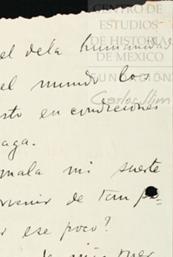 CENTRO DE
ESTUDIOS
DE HISTORIA
DE MEXICO
FUNDACIÓN
Carlos Slim
el dela humanidad
el mundo los
sto en condiciones
aga.
mala mi suerte
venir de tan pe-
r ese poco?